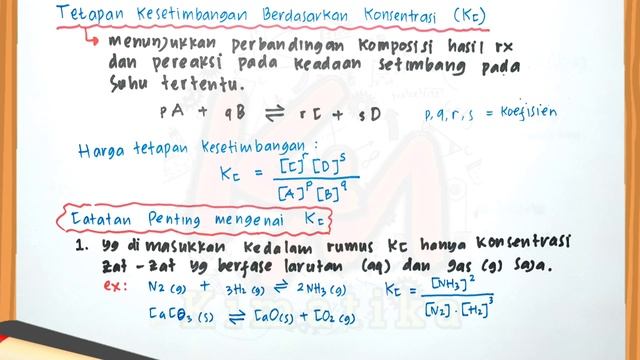 Tetapan Kesetimbangan Berdasarkan Konsentrasi (Kc)
menunjukkan perbandingan komposisi hasil rx
dan pereaksi pada keadaan setimbang pada
suhu tertentu.
pA + qB ⇌ rC + sD p, q, r, s = koefisien
Harga tetapan kesetimbangan :
Kc = [C]^r [D]^s / [A]^p [B]^q
Catatan Penting mengenai Kc
1. yg di masukkan kedalam rumus Kc hanya konsentrasi
zat-zat yg berfase larutan (aq) dan gas (g) saja.
ex: N2 (g) + 3H2 (g) ⇌ 2NH3 (g) Kc = [NH3]^2 / [N2] . [H2]^3
CaCO3 (s) ⇌ CaO(s) + CO2 (g)